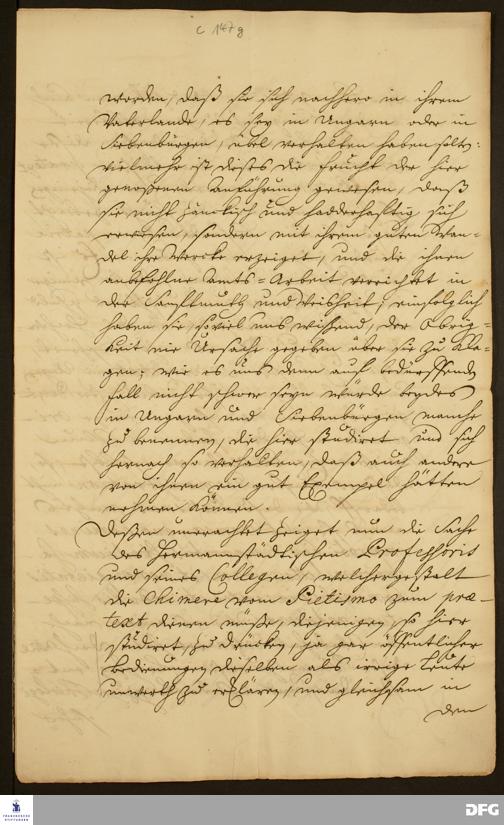 C 147 g
worden, daß sie sich nachhero in ihrem
Vaterlande, es sey in Ungarn oder in
Siebenbürgen, übel verhalten haben solten:
vielmehr ist dieses die Frucht der hier
genoßenen Anführung gewesen, daß
sie nicht zänckisch und hadderhafftig sich
erwiesen, sondern mit ihrem guten Wan=
del ihre Wercke erzeiget, und die ihnen
anbefohlne Amts=Arbeit verrichtet in
der Sanfftmuth und Weisheit; einfolglich
haben sie, soviel uns wißend, der Obrig=
keit nie Ursache gegeben über sie zu kla=
gen; wie es uns denn auf bedürffenden
Fall nicht schwer seyn würde beydes
in Ungarn und Siebenbürgen manche
zu benennen, die hier studiret und sich
hernach so verhalten, daß auch andere
von ihnen ein gut Exempel hätten
nehmen können.
Deßen unerachtet zeiget nun die Sache
des Hermannstädtischen Professoris
und seines Collegen, welchergestalt
die Chimere vom Pietismo zum præ=
text dienen müße, diejenigen, so hier
studiret, zu drücken, ja gar öffentlicher
Bedienungen dieselben als irrige Leute
unwerth zu erklären, und gleichsam in
dem
FRANCKESCHE
STIFTUNGEN
DFG